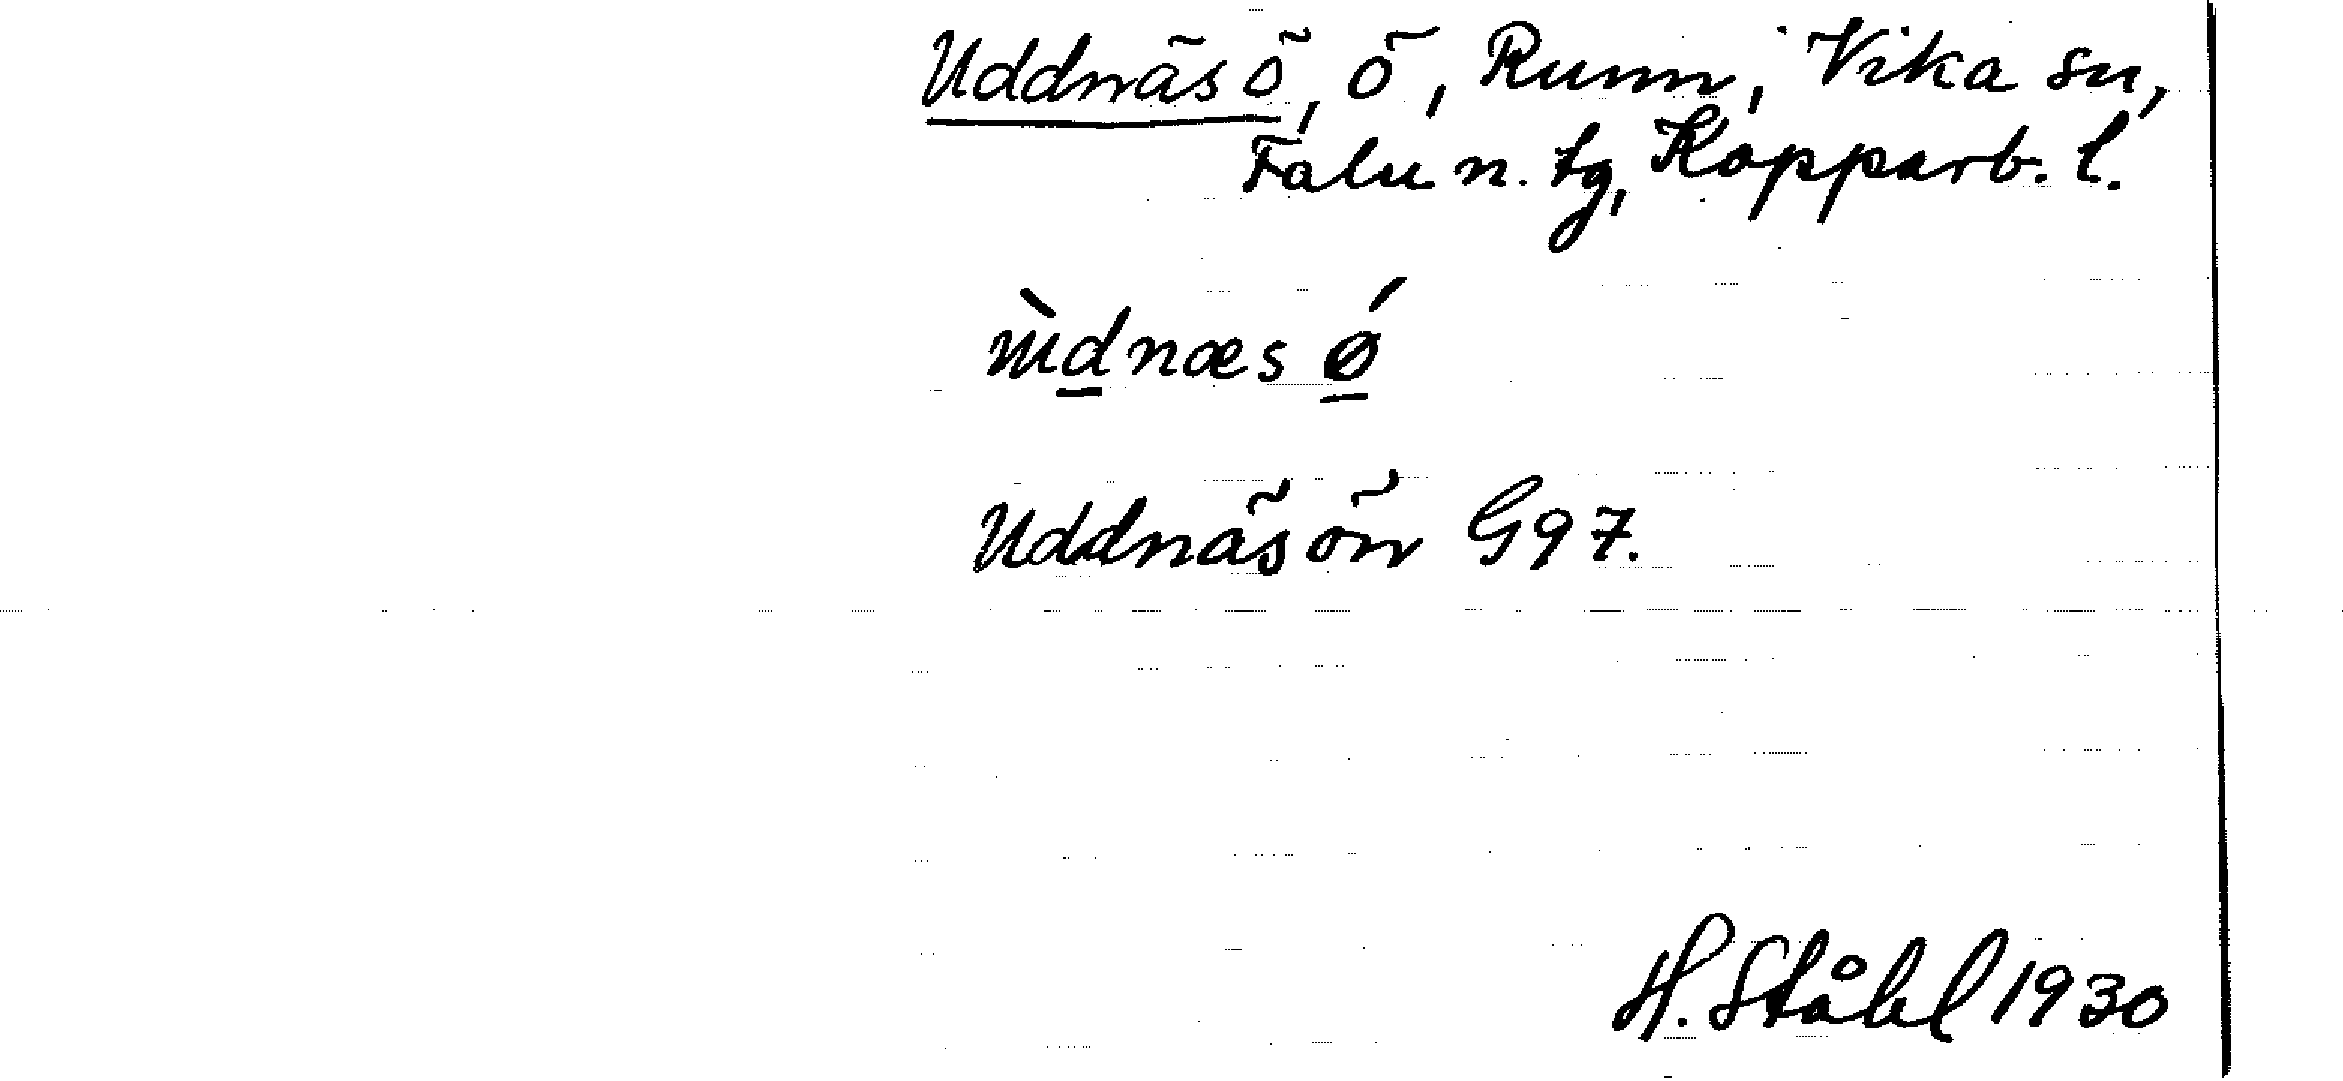 Uddnäsö, ö, Runn, Vika sn,
Falu n. tg, Kopparb. l.
ùdnæs ǿ
Uddnäsön G97.
H. Ståhl 1930